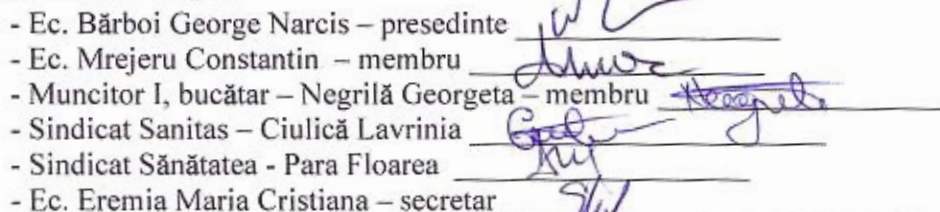 - Ec. Bărboi George Narcis – presedinte
- Ec. Mrejeru Constantin – membru
- Muncitor I, bucătar – Negrilă Georgeta – membru
- Sindicat Sanitas – Ciulică Lavrinia
- Sindicat Sănătatea - Para Floarea
- Ec. Eremia Maria Cristiana – secretar